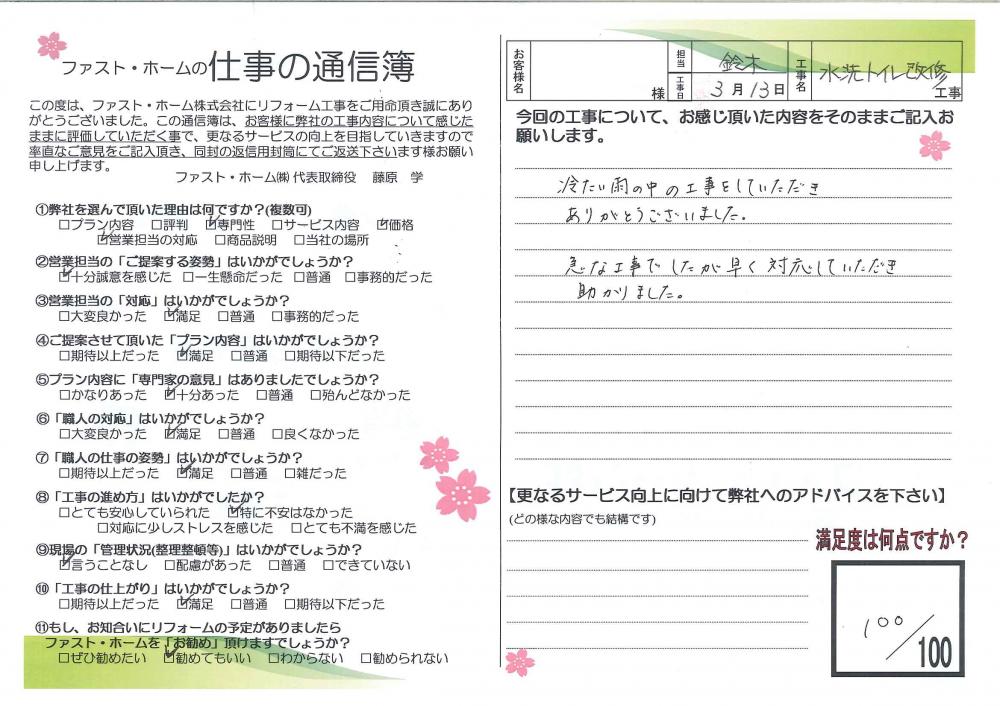 ファスト・ホームの仕事の通信簿
この度は、ファスト・ホーム株式会社にリフォーム工事をご用命頂き誠にあり
がとうございました。この通信簿は、お客様に弊社の工事内容について感じた
ままに評価していただく事で、更なるサービスの向上を目指していきますので
率直なご意見をご記入頂き、同封の返信用封筒にてご返送下さいます様お願い
申し上げます。
ファスト・ホーム㈱ 代表取締役 藤原 学
①弊社を選んで頂いた理由は何ですか？(複数可)
□プラン内容 □評判 ☑専門性 □サービス内容 ☑価格
☑営業担当の対応 □商品説明 □当社の場所
②営業担当の「ご提案する姿勢」はいかがでしょうか？
☑十分誠意を感じた □一生懸命だった □普通 □事務的だった
③営業担当の「対応」はいかがでしょうか？
□大変良かった ☑満足 □普通 □事務的だった
④ご提案させて頂いた「プラン内容」はいかがでしょうか？
□期待以上だった ☑満足 □普通 □期待以下だった
⑤プラン内容に「専門家の意見」はありましたでしょうか？
□かなりあった ☑十分あった □普通 □殆んどなかった
⑥「職人の対応」はいかがでしょうか？
□大変良かった ☑満足 □普通 □良くなかった
⑦「職人の仕事の姿勢」はいかがでしょうか？
□期待以上だった ☑満足 □普通 □雑だった
⑧「工事の進め方」はいかがでしたか？
□とても安心していられた ☑特に不安はなかった
□対応に少しストレスを感じた □とても不満を感じた
⑨現場の「管理状況(整理整頓等)」はいかがでしょうか？
☑言うことなし □配慮があった □普通 □できていない
⑩「工事の仕上がり」はいかがでしょうか？
□期待以上だった ☑満足 □普通 □期待以下だった
⑪もし、お知合いにリフォームの予定がありましたら
ファスト・ホームを「お勧め」頂けますでしょうか？
□ぜひ勧めたい ☑勧めてもいい □わからない □勧められない
お客様名 様 担当 鈴木 工事日 3月13日 工事名 水洗トイレ改修 工事
今回の工事について、お感じ頂いた内容をそのままご記入お
願いします。
冷たい雨の中の工事をしていただき
ありがとうございました。
急な工事でしたが早く対応していただき
助かりました。
【更なるサービス向上に向けて弊社へのアドバイスを下さい】
(どの様な内容でも結構です)
満足度は何点ですか？
100/100